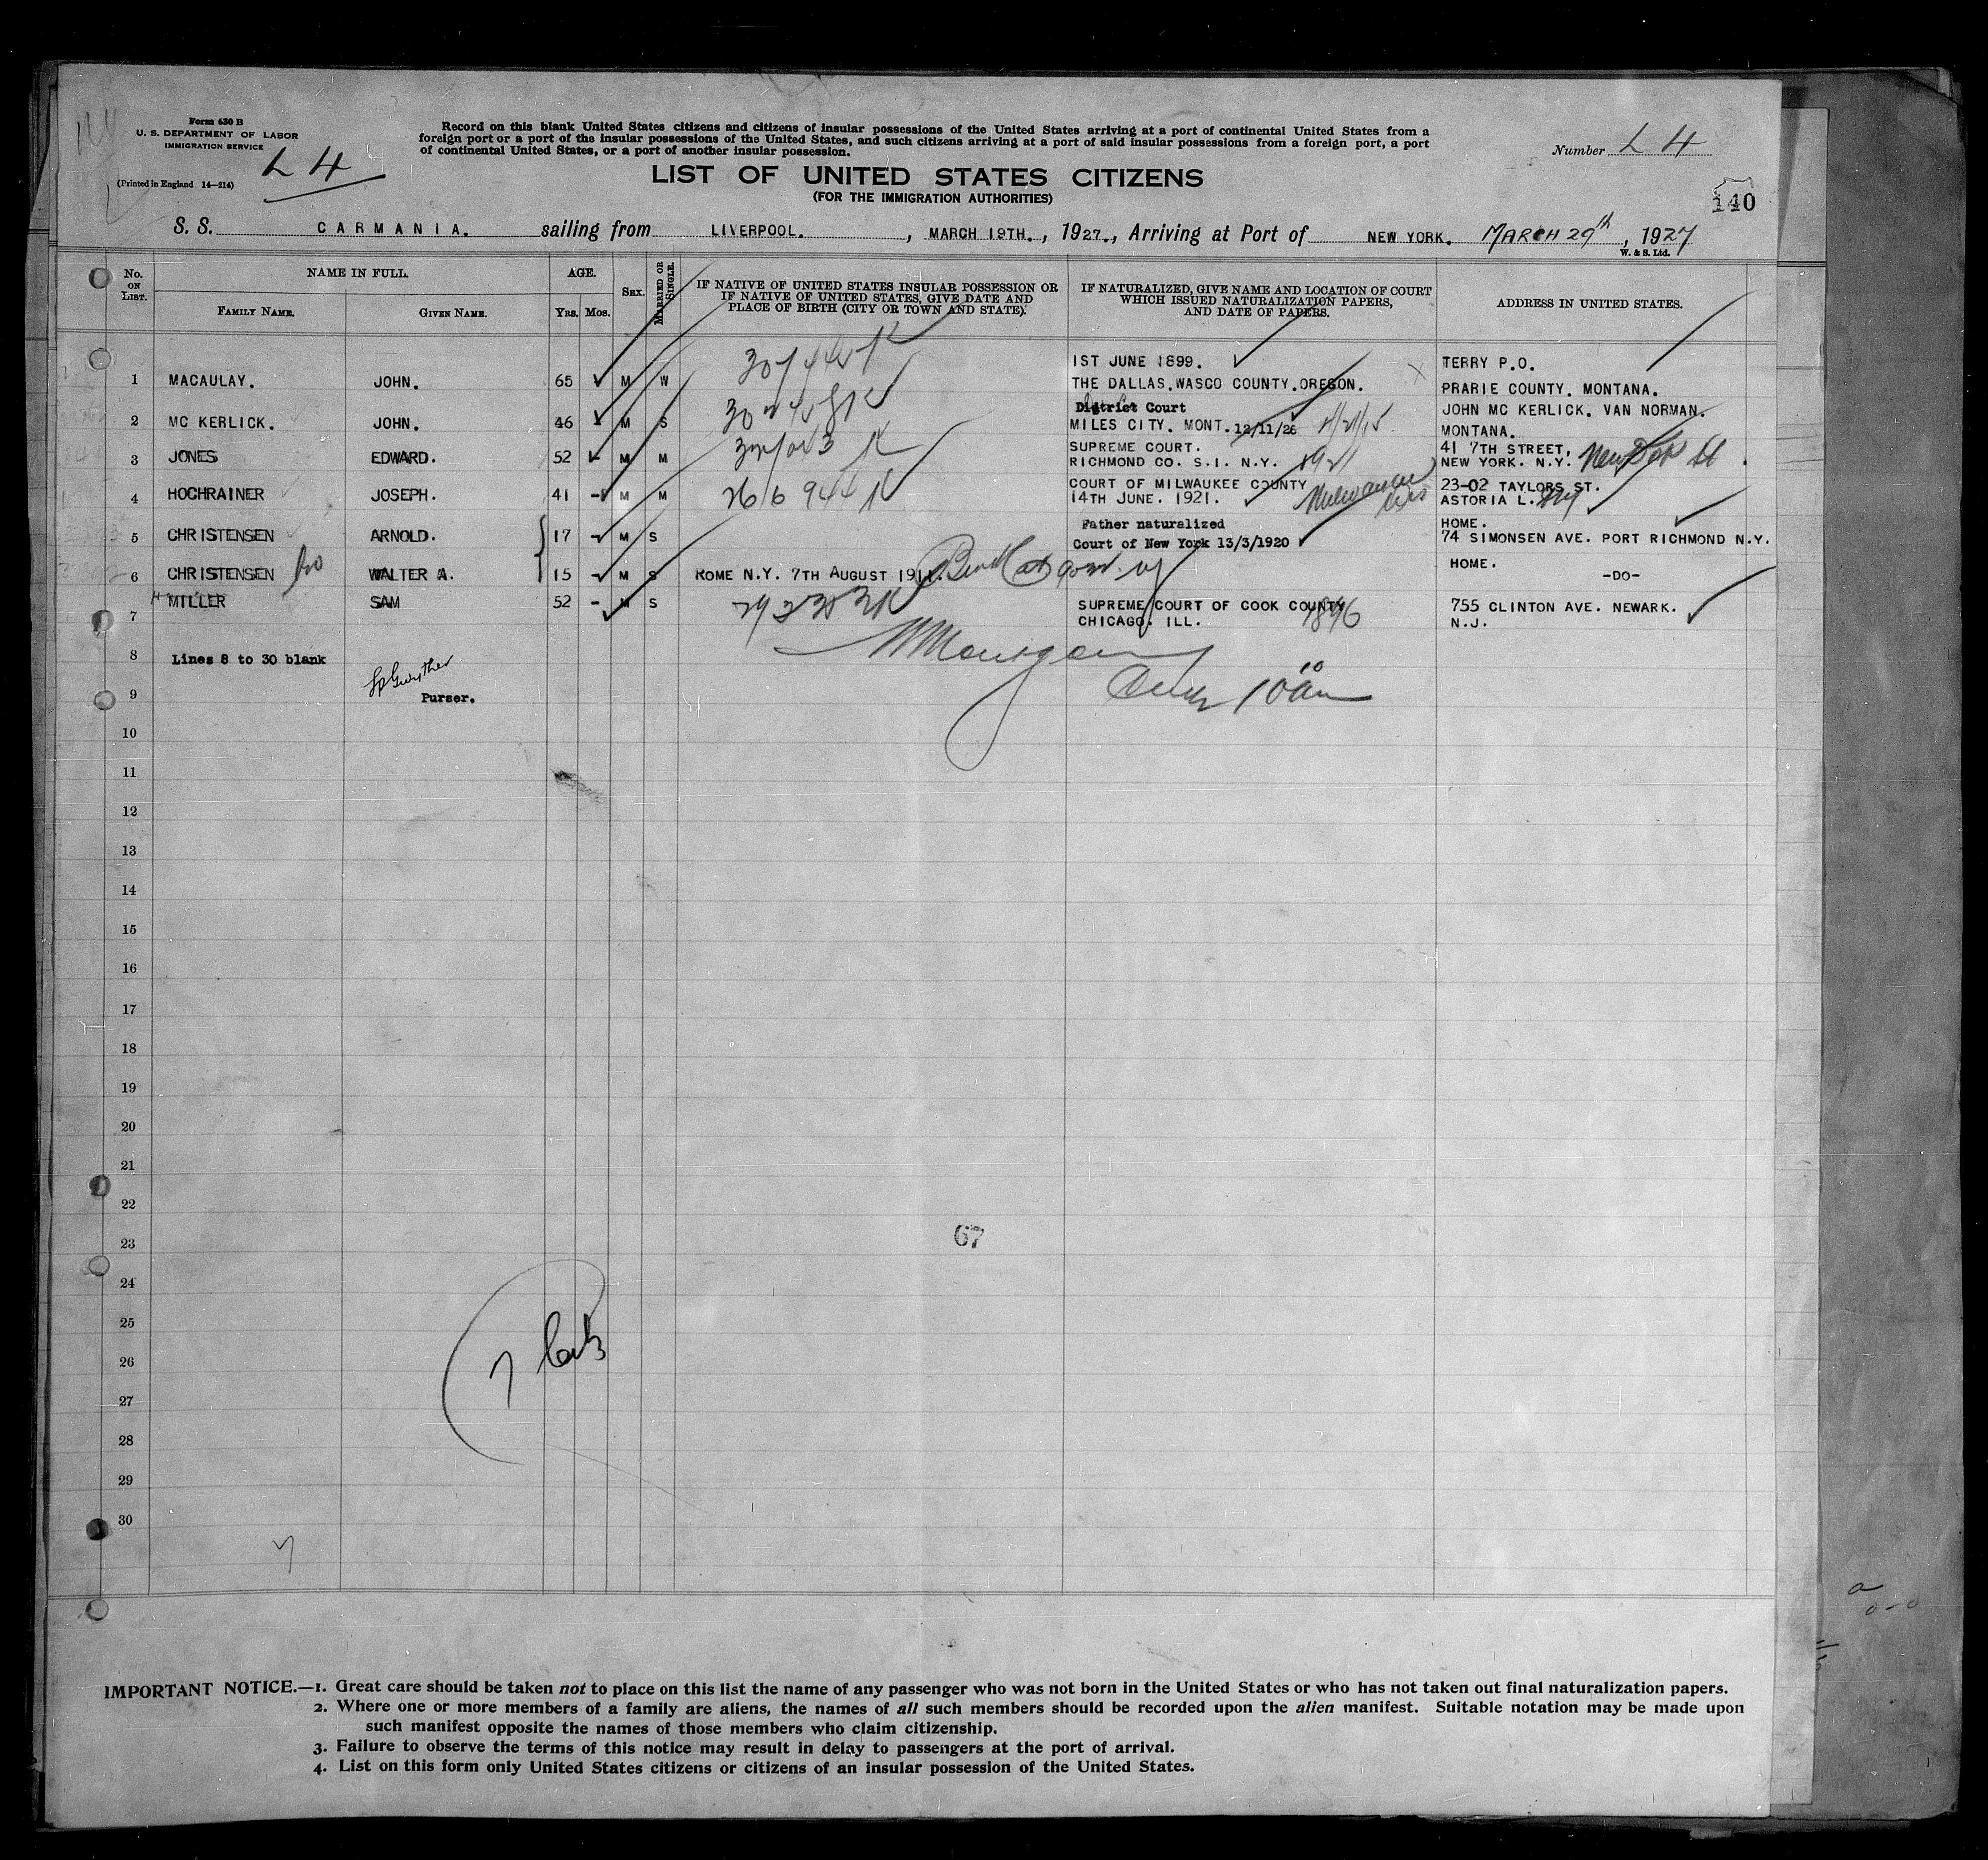 Form 630 B
U. S. DEPARTMENT OF LABOR
IMMIGRATION SERVICE
L 4
(Printed in England 14—214)
Record on this blank United States citizens and citizens of insular possessions of the United States arriving at a port of continental United States from a
foreign port or a port of the insular possessions of the United States, and such citizens arriving at a port of said insular possessions from a foreign port, a port
of continental United States, or a port of another insular possession.
Number L 4
LIST OF UNITED STATES CITIZENS
(FOR THE IMMIGRATION AUTHORITIES)
140
S. S. CARMANIA. sailing from LIVERPOOL. , MARCH 19TH. , 1927. , Arriving at Port of NEW YORK. MARCH 29th , 1927
W. & S. Ltd.
No. ON LIST.
NAME IN FULL.
FAMILY NAME.
GIVEN NAME.
AGE.
Yrs. Mos.
SEX.
MARRIED OR SINGLE.
IF NATIVE OF UNITED STATES INSULAR POSSESSION OR
IF NATIVE OF UNITED STATES, GIVE DATE AND
PLACE OF BIRTH (CITY OR TOWN AND STATE).
IF NATURALIZED, GIVE NAME AND LOCATION OF COURT
WHICH ISSUED NATURALIZATION PAPERS,
AND DATE OF PAPERS.
ADDRESS IN UNITED STATES.
1 MACAULAY. JOHN. 65 M W 1ST JUNE 1899. TERRY P.O.
THE DALLAS. WASCO COUNTY. OREGON. PRARIE COUNTY. MONTANA.
2 MC KERLICK. JOHN. 46 M S District Court JOHN MC KERLICK. VAN NORMAN.
MILES CITY. MONT. 12/11/26 MONTANA.
3 JONES EDWARD. 52 M M SUPREME COURT. 41 7TH STREET,
RICHMOND CO. S.I. N.Y. NEW YORK. N.Y.
4 HOCHRAINER JOSEPH. 41 - M M COURT OF MILWAUKEE COUNTY 23-02 TAYLORS ST.
14TH JUNE. 1921. Milwaukee Wis ASTORIA L.
5 CHRISTENSEN ARNOLD. 17 - M S Father naturalized HOME.
Court of New York 13/3/1920 74 SIMONSEN AVE. PORT RICHMOND N.Y.
6 CHRISTENSEN WALTER A. 15 - M S ROME N.Y. 7TH AUGUST 1911. HOME.
-DO-
7 MILLER SAM 52 - M S SUPREME COURT OF COOK COUNTY 1896 755 CLINTON AVE. NEWARK.
CHICAGO. ILL. N.J.
8 Lines 8 to 30 blank
9 Purser.
10
11
12
13
14
15
16
17
18
19
20
21
22
23
67
24
25
26
27
28
29
30
IMPORTANT NOTICE.—1. Great care should be taken not to place on this list the name of any passenger who was not born in the United States or who has not taken out final naturalization papers.
2. Where one or more members of a family are aliens, the names of all such members should be recorded upon the alien manifest. Suitable notation may be made upon
such manifest opposite the names of those members who claim citizenship.
3. Failure to observe the terms of this notice may result in delay to passengers at the port of arrival.
4. List on this form only United States citizens or citizens of an insular possession of the United States.